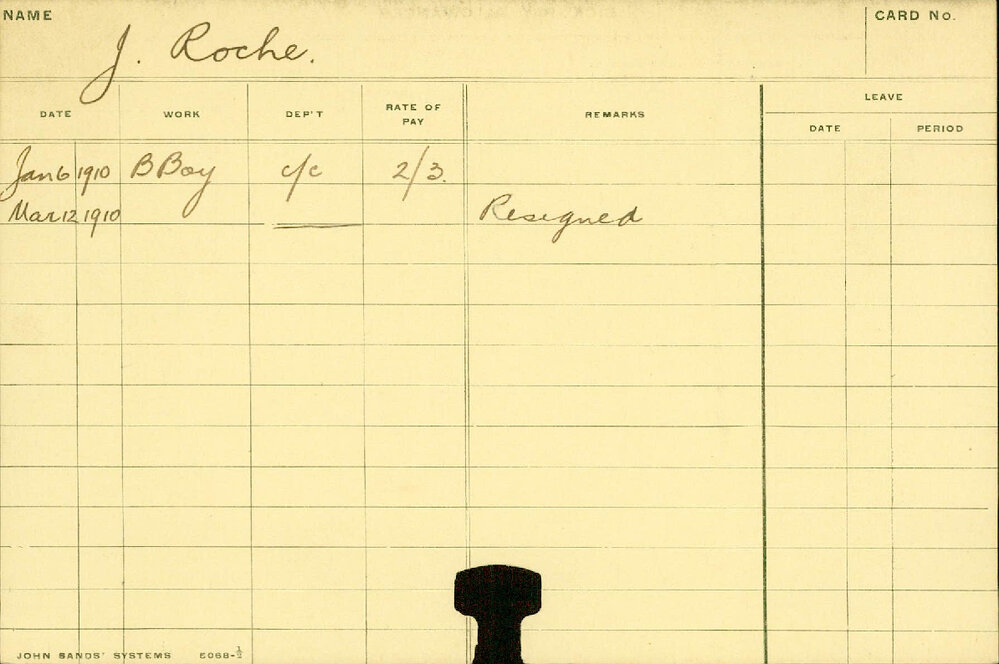 NAME
J. Roche.
CARD No.
DATE WORK DEP'T RATE OF PAY REMARKS LEAVE
DATE PERIOD
Jan 6 1910 B Boy c/c 2/3.
Mar 12 1910 Resigned
JOHN SANDS' SYSTEMS 5068-½